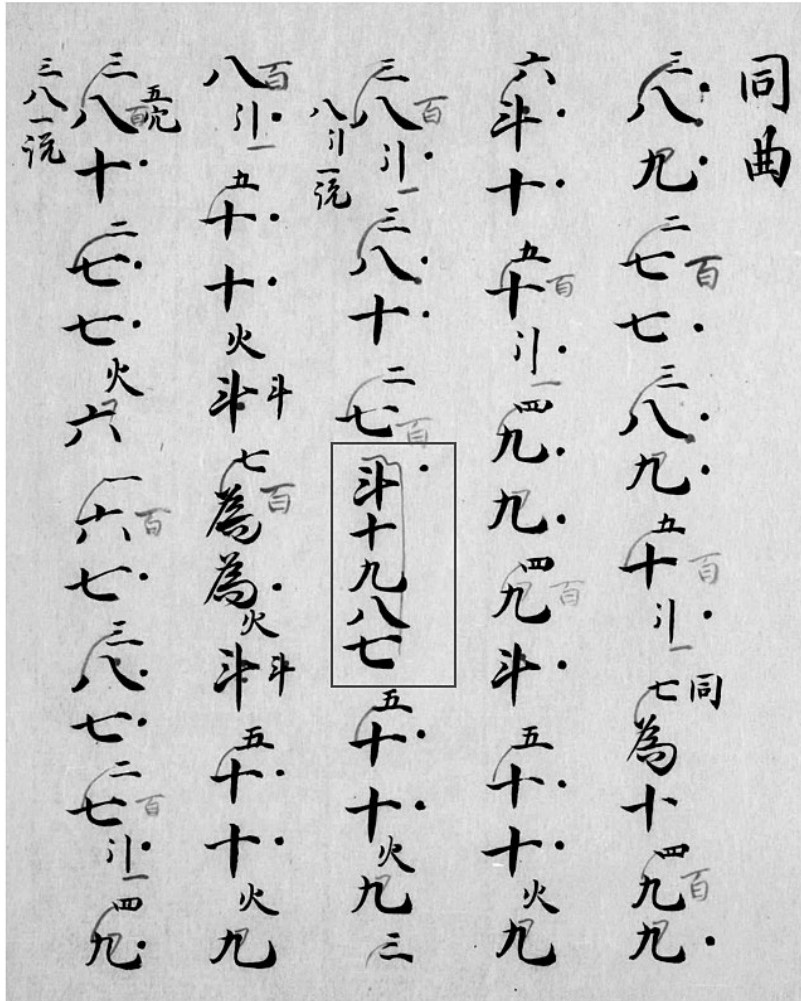 同曲
三八九二七百七三八九五十百引一七同為十四九百九
六斗十五十百引一四九九四九百斗五十十火九
三八百引一八引一説三八十二七百斗十九八七五十十火九三
八百引一五十十火斗斗七為百為火斗斗五十十火九
三八百五説十二七七火六一六百七三八七二七百引一四九
三八一説